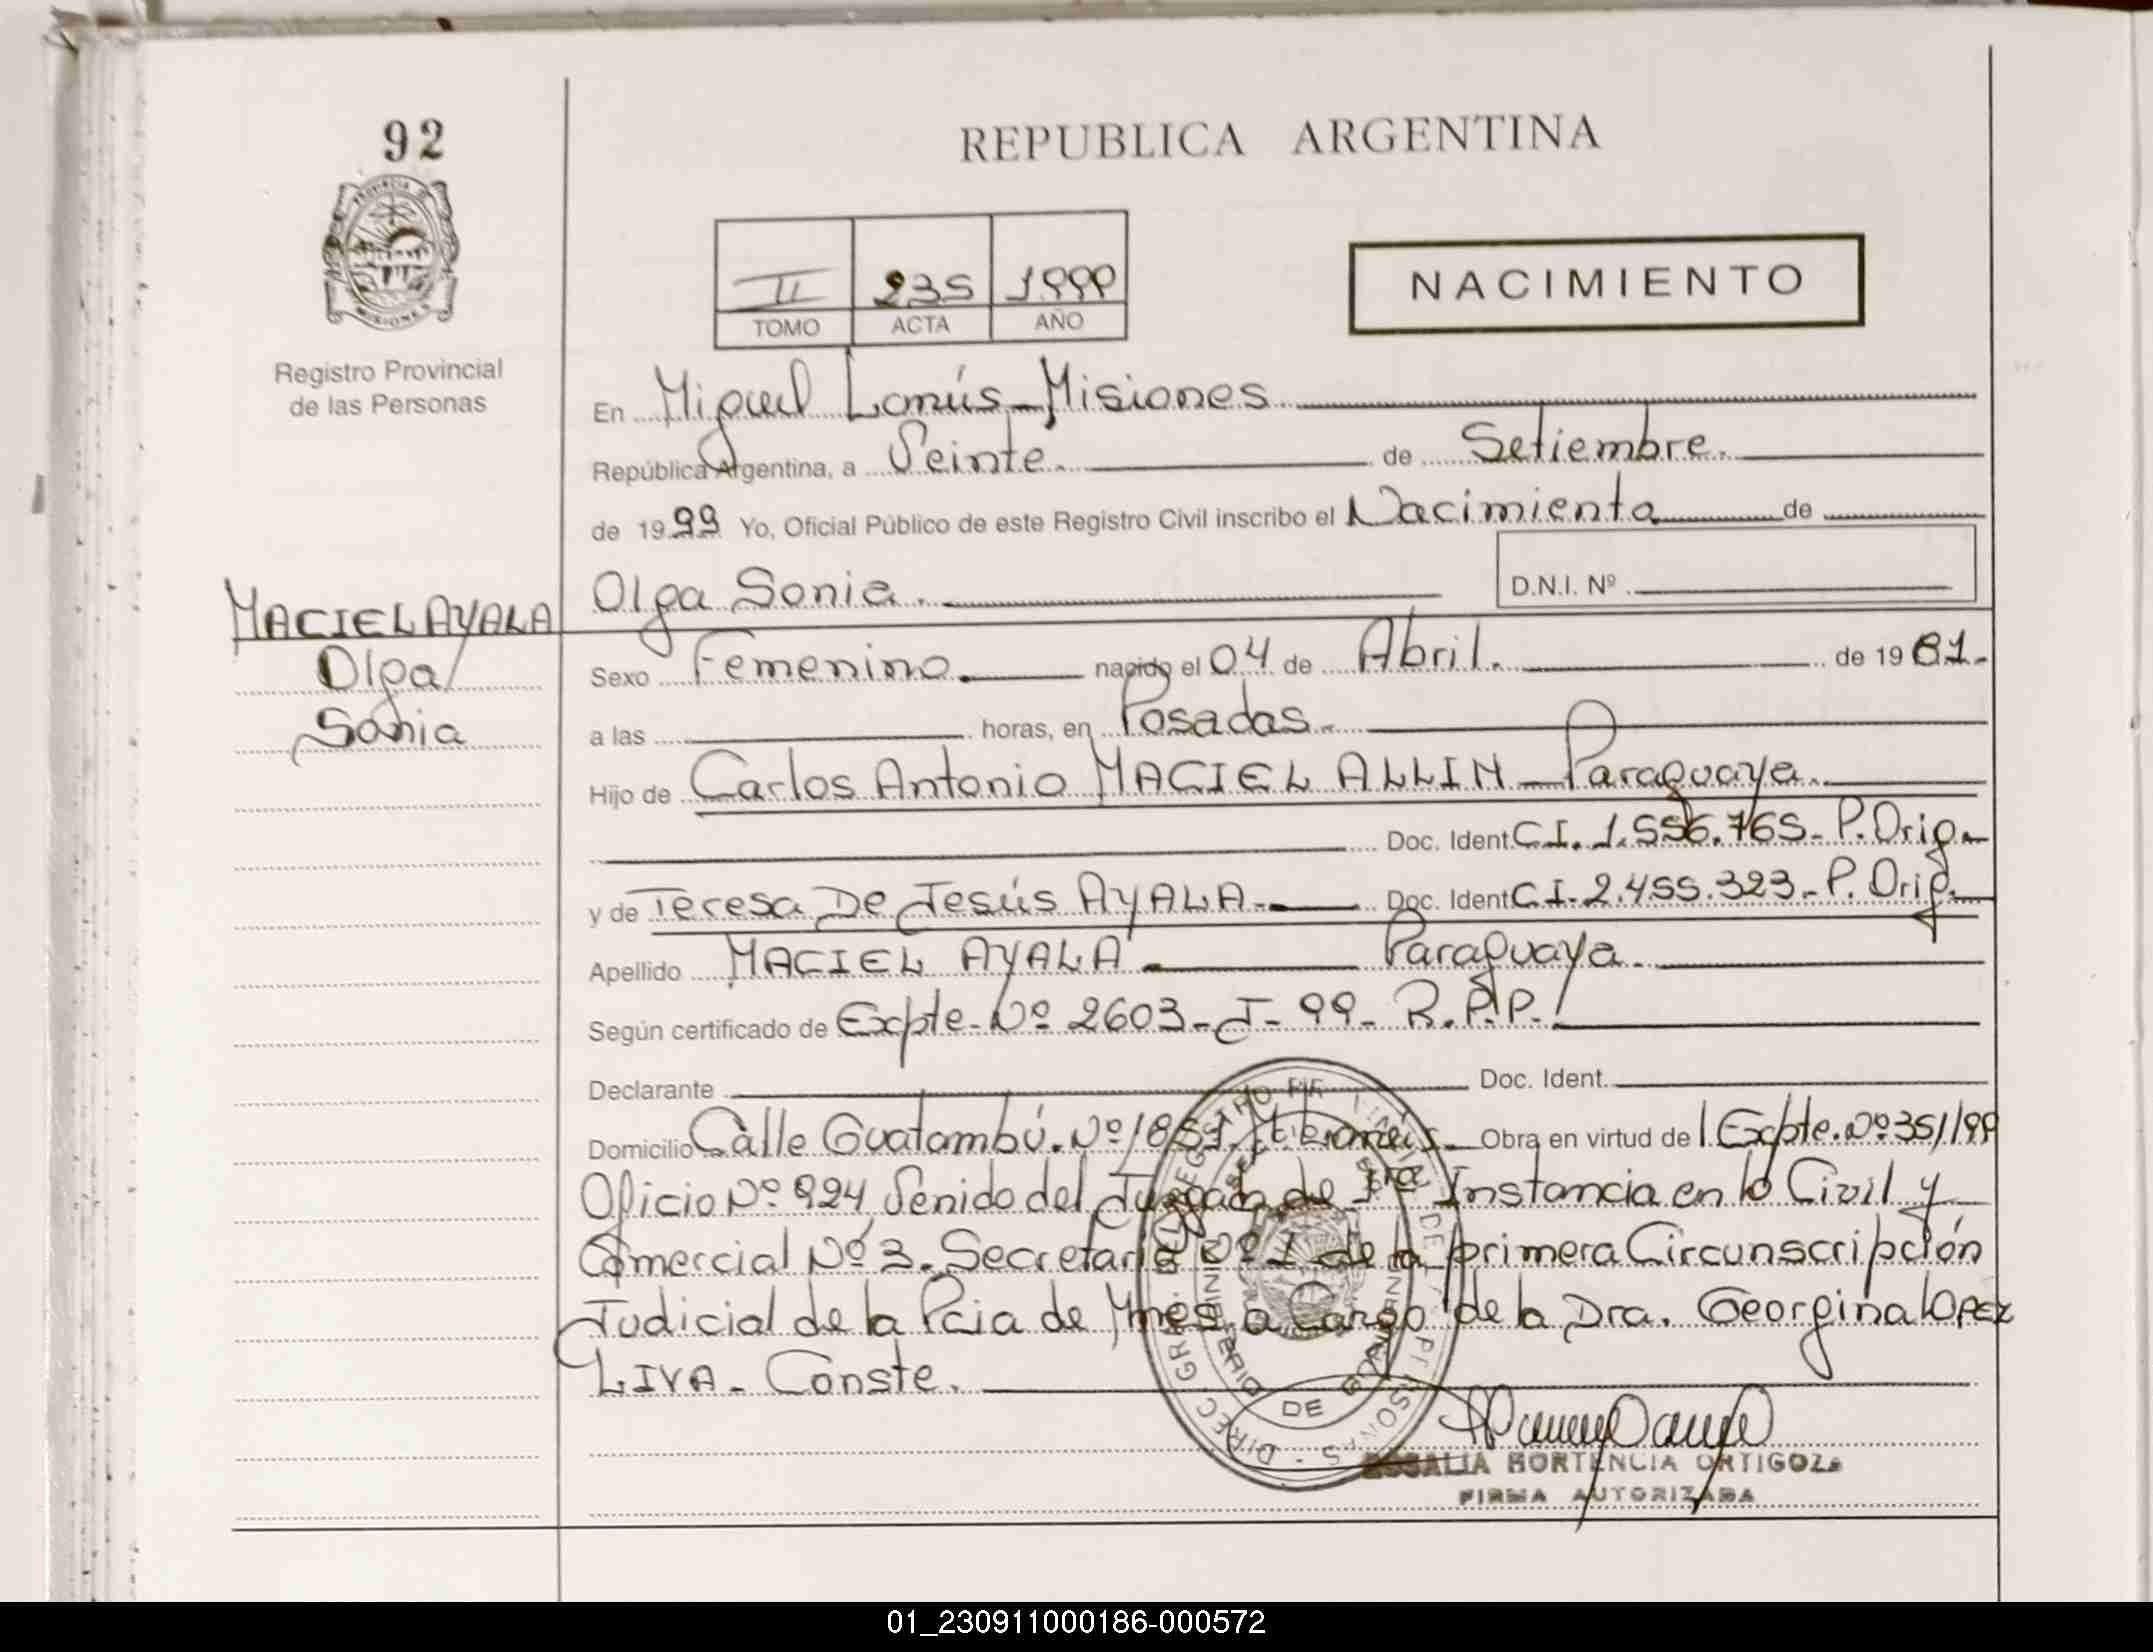 92
REPUBLICA ARGENTINA
PROVINCIA DE
MISIONES
Registro Provincial
de las Personas
II 235 1999
TOMO ACTA AÑO
NACIMIENTO
En Miguel Lanús - Misiones
República Argentina, a Veinte. de Setiembre.
de 1999 Yo, Oficial Público de este Registro Civil inscribo el Nacimiento de
Olga Sonia. D.N.I. Nº
MACIEL AYALA
Olga
Sonia
Sexo Femenino. nacido el 04 de Abril. de 1981.-
a las horas, en Posadas.-
Hijo de Carlos Antonio MACIEL ALLIN - Paraguaya.
Doc. Ident. C.I. 1.556.765- P. Orig.-
y de Teresa De Jesús AYALA.- Doc. Ident. C.I- 2.455.323- P. Orig.
Apellido MACIEL AYALA - Paraguaya.
Según certificado de Expte- Nº 2603- J- 99- R.P.P.
Declarante Doc. Ident.
Domicilio Calle Guatambú. Nº 1851. Obra en virtud de Expte. Nº 351/99
Oficio Nº 924 Venido del Juzgado de 1ra Instancia en lo Civil y
Comercial Nº 3. Secretaria Nº 1 de la primera Circunscripción
Judicial de la Pcia de Mnes. a cargo de la Dra. Georgina LOPEZ
LIVA - Conste.
ROSALIA HORTENCIA ORTIGOZA
FIRMA AUTORIZADA
01_230911000186-000572